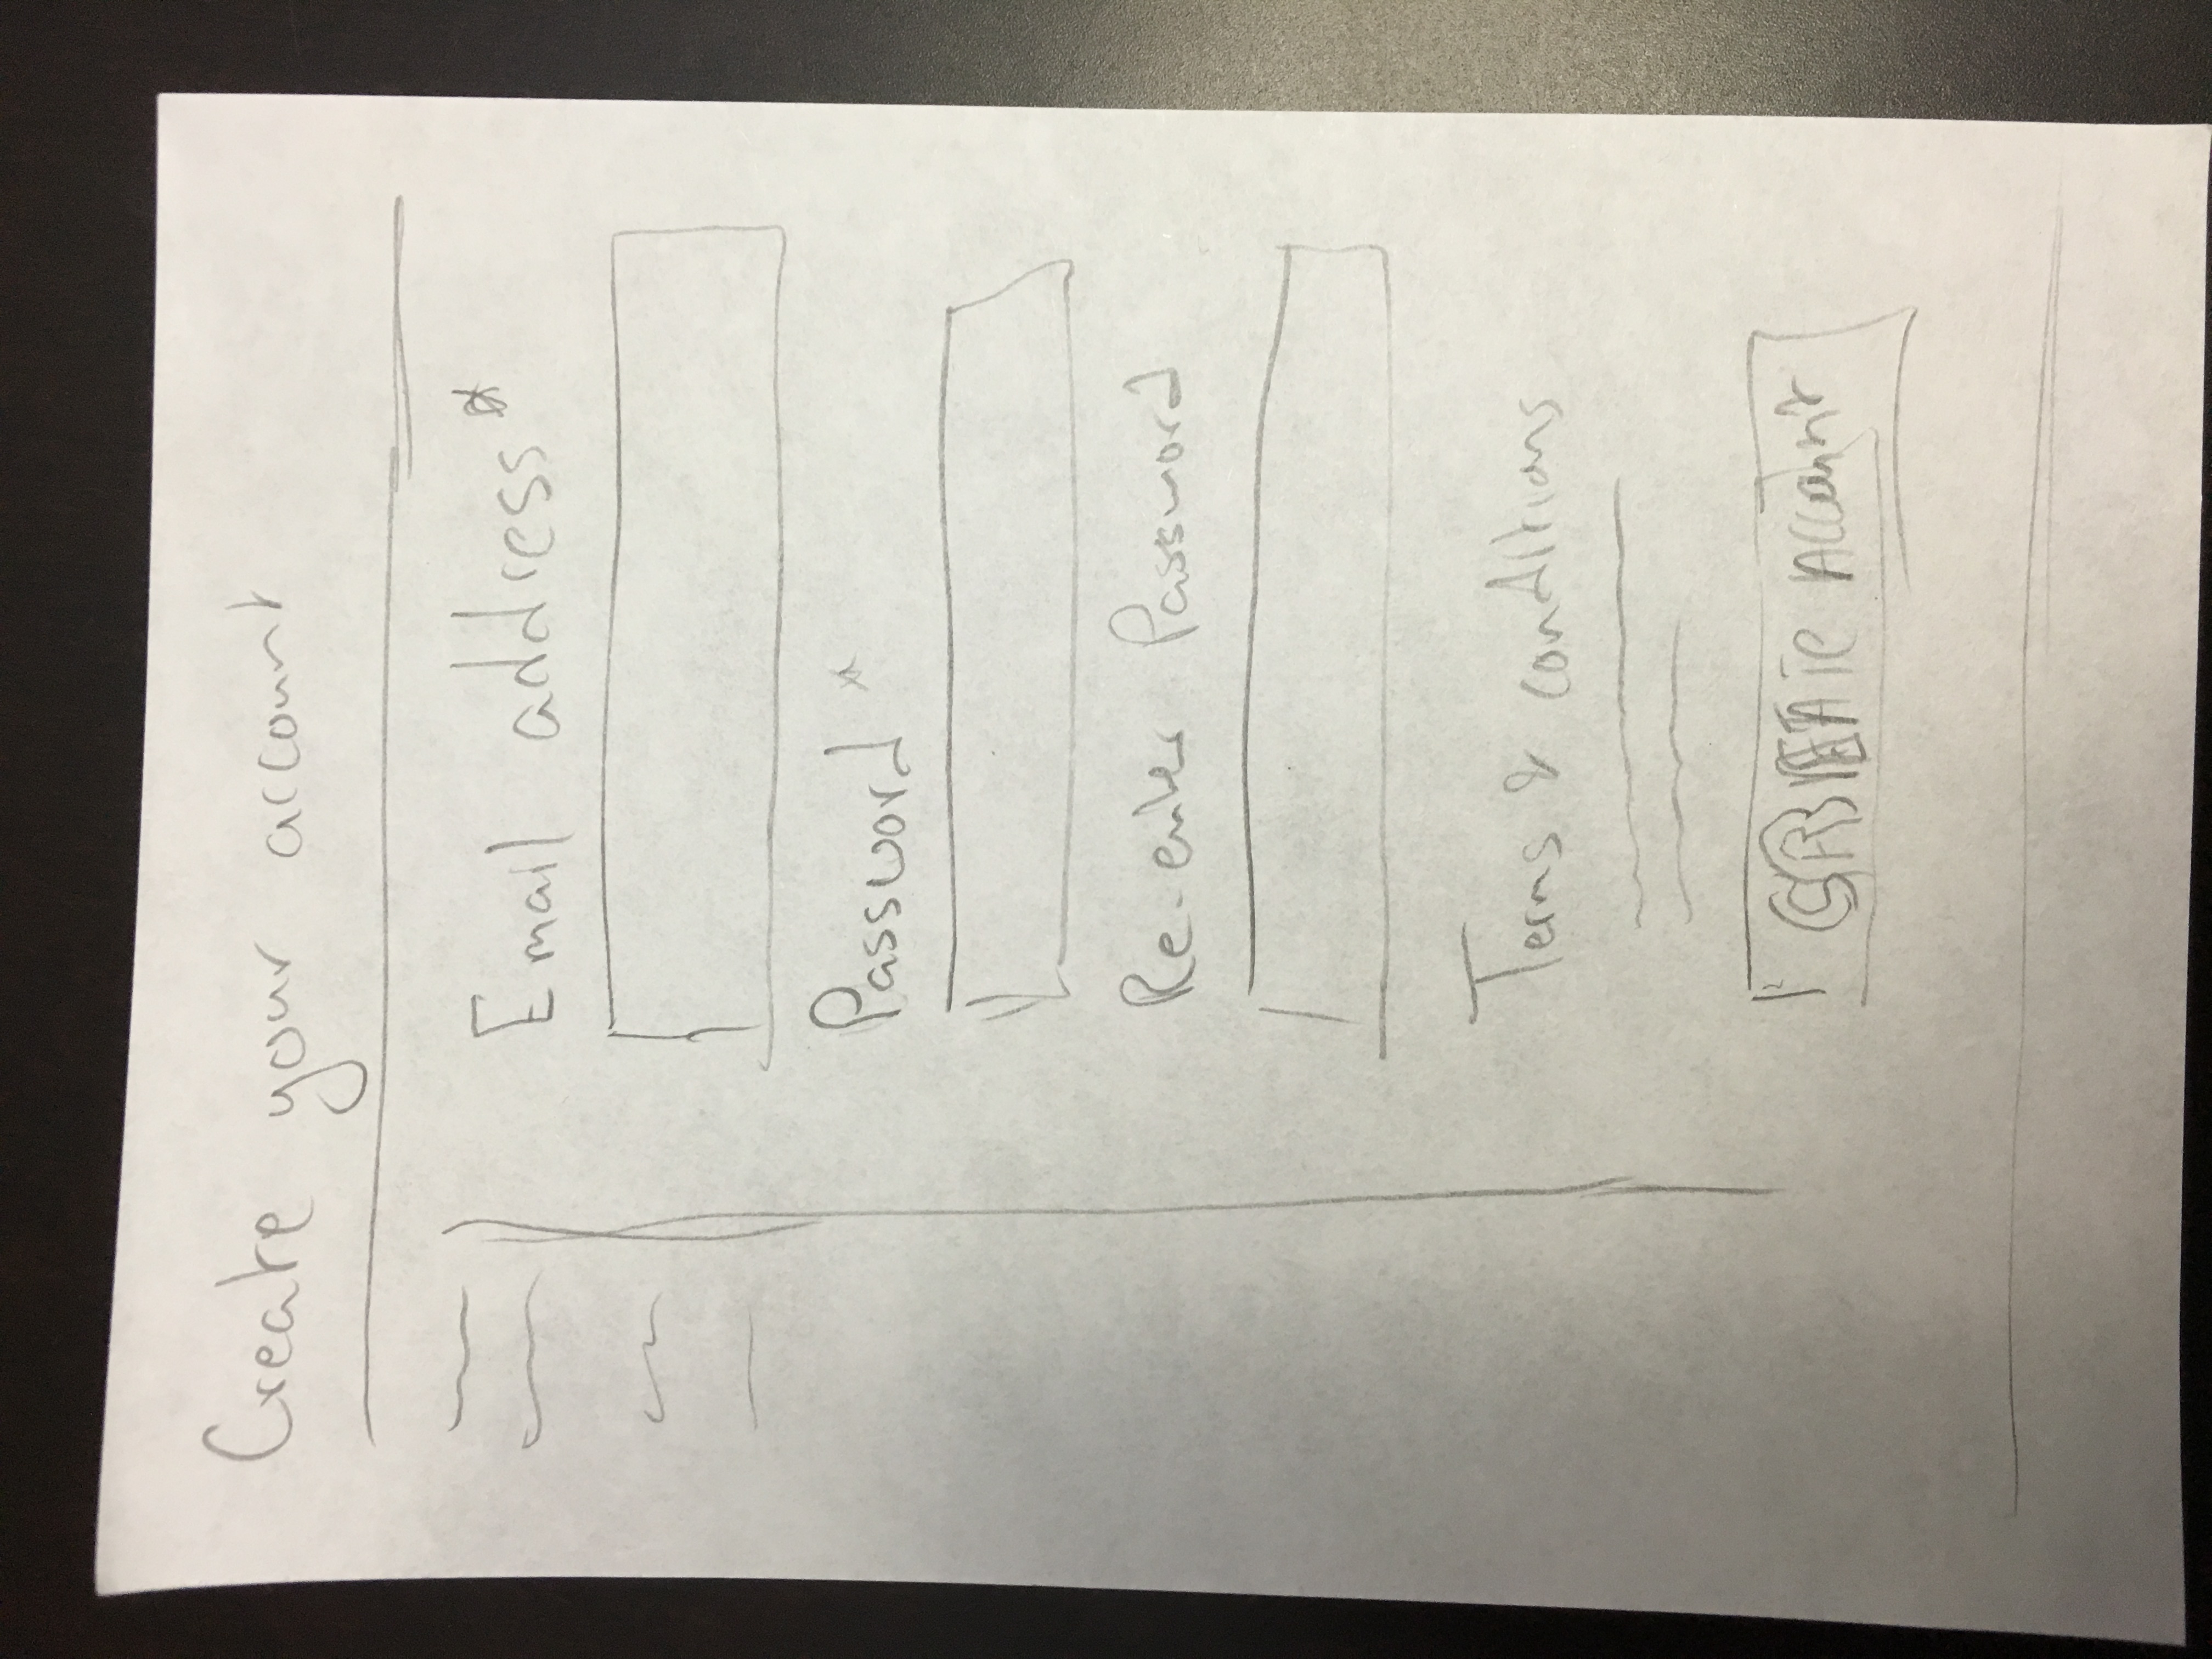 Create your account
Email address*
Password *
Re-enter Password
Terms & conditions
CREATE Account